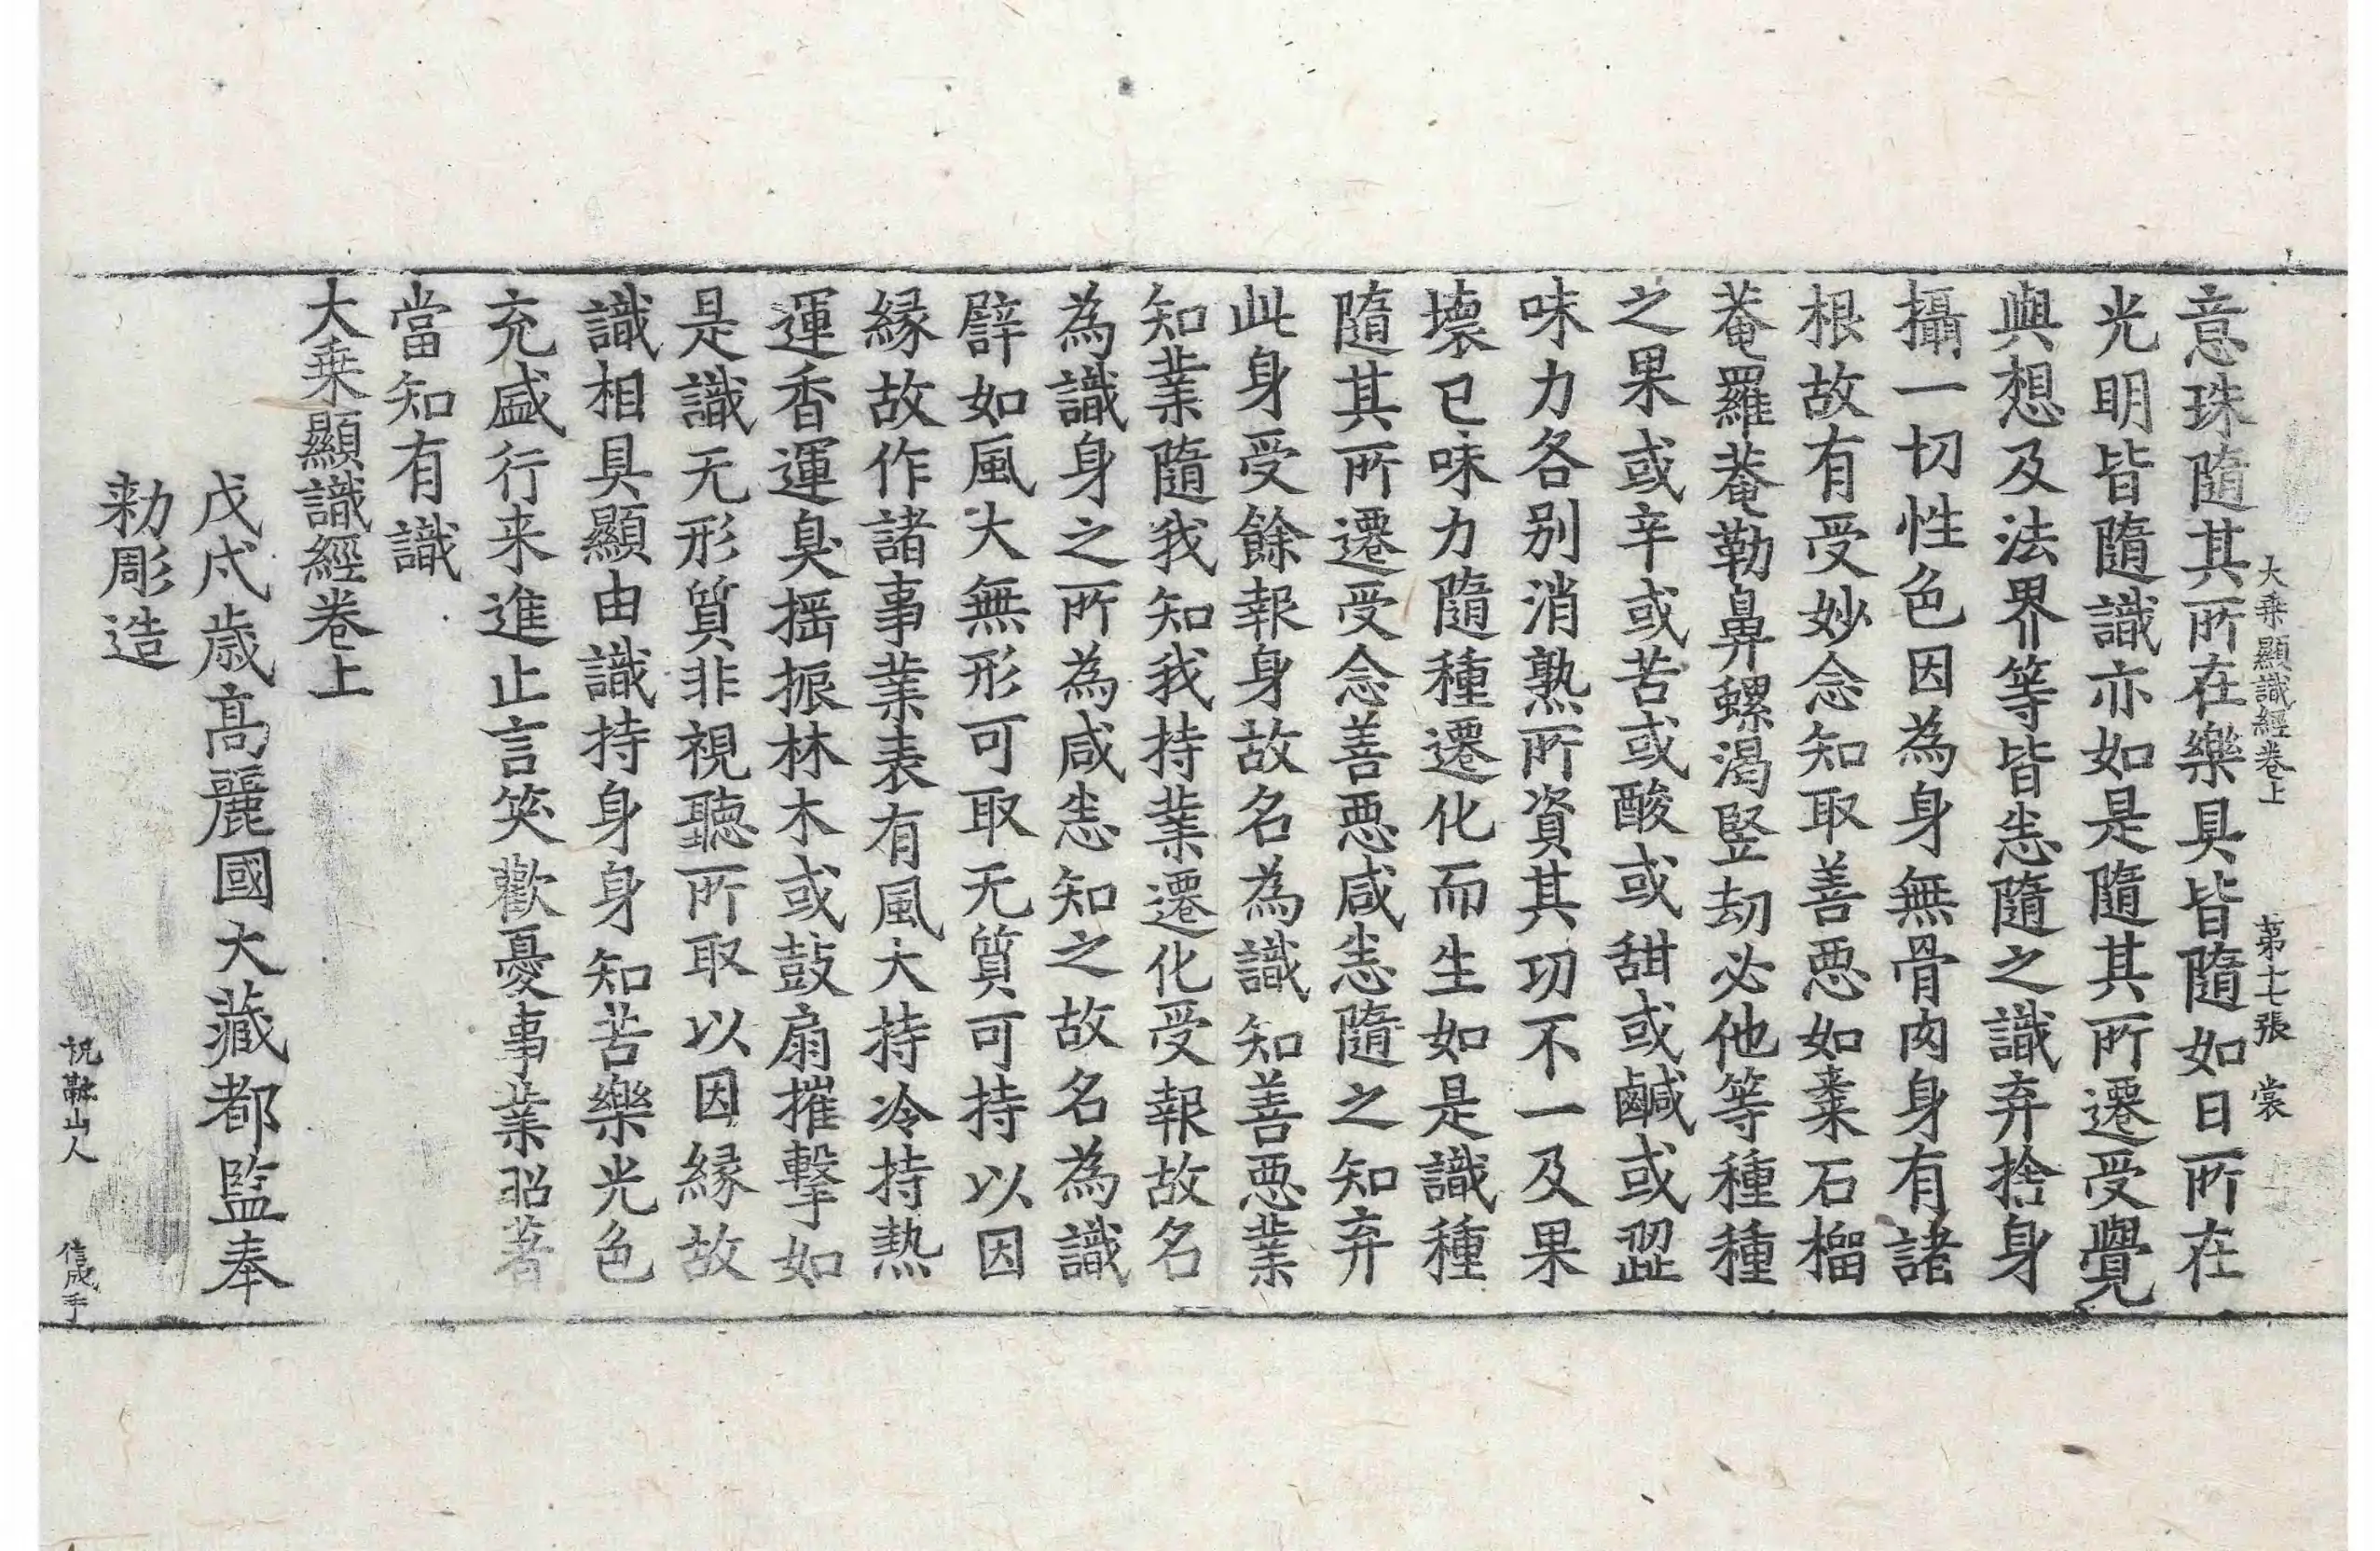 大乗顯識經卷上　第十七張　裳
意珠隨其所在樂具皆隨如日所在
光明皆隨識亦如是隨其所遷受覺
與想及法界等皆悉隨之識弃捨身
攝一切性色因為身無骨肉身有諸
根故有受妙念知取善惡如棗石榴
菴羅菴勒鼻螺渴竪劫必他等種種
之果或辛或苦或酸或甜或鹹或澀
味力各别消熟所資其功不一及果
壞已味力隨種遷化而生如是識種
隨其所遷受念善惡咸悉隨之知弃
此身受餘報身故名為識知善惡業
知業隨我知我持業遷化受報故名
為識身之所為咸悉知之故名為識
譬如風大無形可取无質可持以因
縁故作諸事業表有風大持冷持熱
運香運臭揺振林木或鼓扇摧擊如
是識无形質非視聽所取以因縁故
識相具顯由識持身身知苦樂光色
充盛行来進止言笑歡憂事業昭著
當知有識
大乗顯識經卷上
戊戌歲高麗國大藏都監奉
勑彫造
山人　信成手